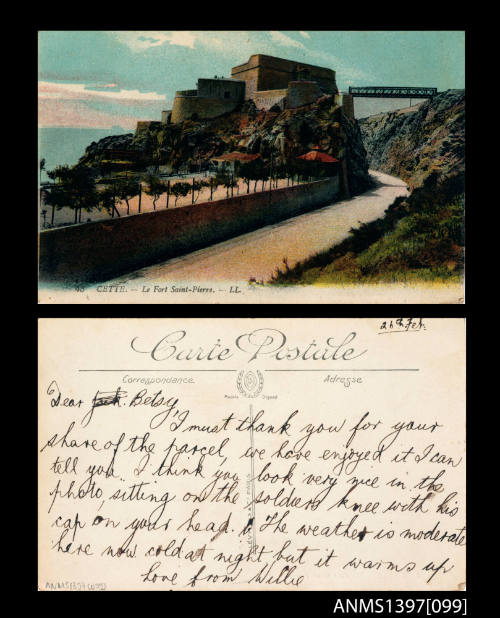 48 CETTE. — Le Fort Saint-Pierre. — LL.
26th Feb.
Carte Postale
Correspondance
Adresse
Modèle Déposé
Dear Betsy,
I must thank you for your
share of the parcel, we have enjoyed it I can
tell you. I think you look very nice in the
photo, sitting on the soldiers knee with his
cap on your head. The weather is moderate
here now cold at night, but it warms up
Love from Willie
ANMS1397[099]
ANMS1397[099]